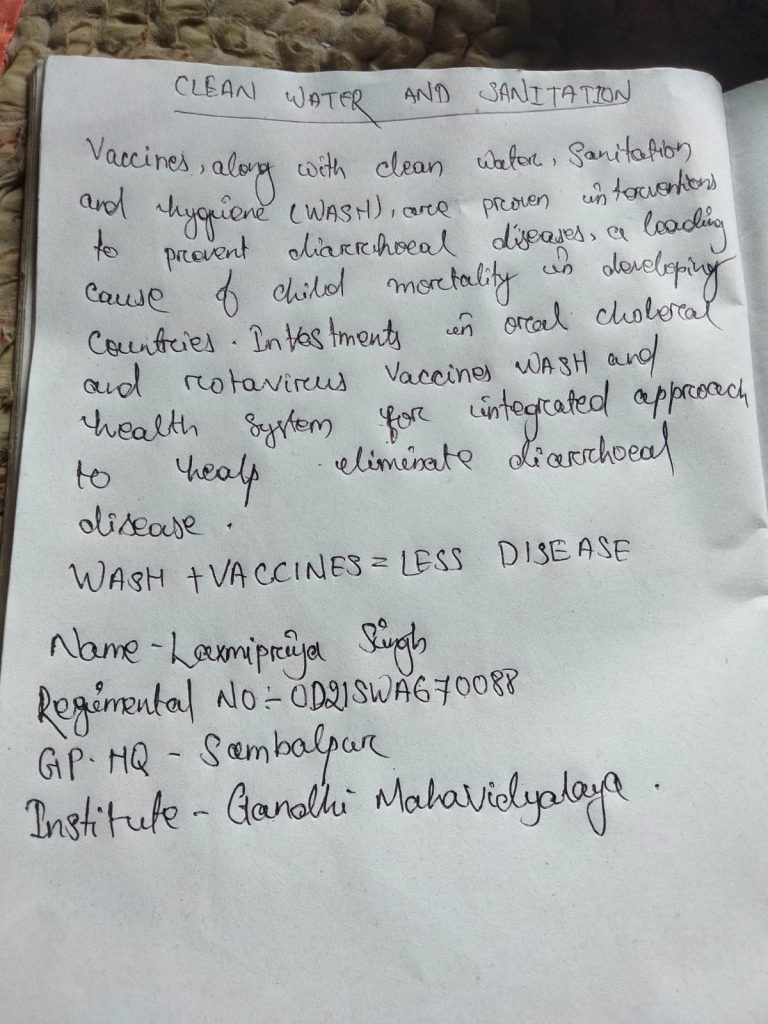 CLEAN WATER AND SANITATION
Vaccines, along with clean water, Sanitation
and hygiene (WASH), are proven interventions
to prevent diarrhoeal diseases, a leading
cause of child mortality in developing
Countries. Investments in oral choleral
and rotavirus Vaccines WASH and
health system for integrated approach
to healp eliminate diarrhoeal
disease.
WASH + VACCINES = LESS DISEASE
Name - Laxmipriya Singh
Regimental NO:- OD21SWA670088
GP. HQ - Sambalpur
Institute - Gandhi Mahavidyalaya.